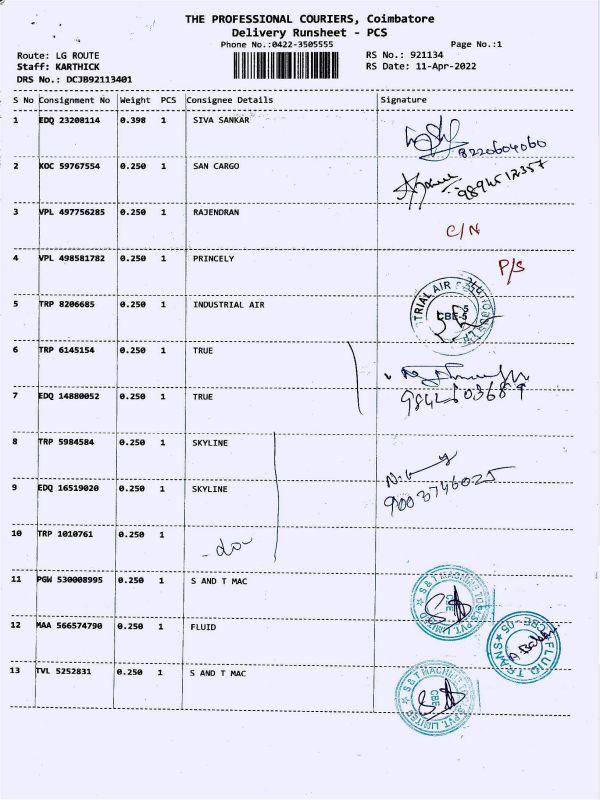 THE PROFESSIONAL COURIERS, Coimbatore
Delivery Runsheet - PCS
Phone No.:0422-3505555
Page No.:1
Route: LG ROUTE
RS No.: 921134
Staff: KARTHICK
RS Date: 11-Apr-2022
DRS No.: DCJB92113401
S No Consignment No Weight PCS Consignee Details Signature
1 EDQ 23208114 0.398 1 SIVA SANKAR
8220604060
2 KOC 59767554 0.250 1 SAN CARGO
9894512357
3 VPL 497756285 0.250 1 RAJENDRAN C/N
4 VPL 498581782 0.250 1 PRINCELY P/S
5 TRP 8206685 0.250 1 INDUSTRIAL AIR
TRIAL AIR
CBE-5
6 TRP 6145154 0.250 1 TRUE
7 EDQ 14880052 0.250 1 TRUE
8 TRP 5984584 0.250 1 SKYLINE
9 EDQ 16519020 0.250 1 SKYLINE
9003746025
10 TRP 1010761 0.250 1 -do-
11 PGW 530008995 0.250 1 S AND T MAC
S & T MACHINE TOOLS PVT. LIMITED
CBE
12 MAA 566574790 0.250 1 FLUID
FLUID TRANS CBE-05
13 TVL 5252831 0.250 1 S AND T MAC
S & T MACHINE TOOLS PVT. LIMITED
CBE